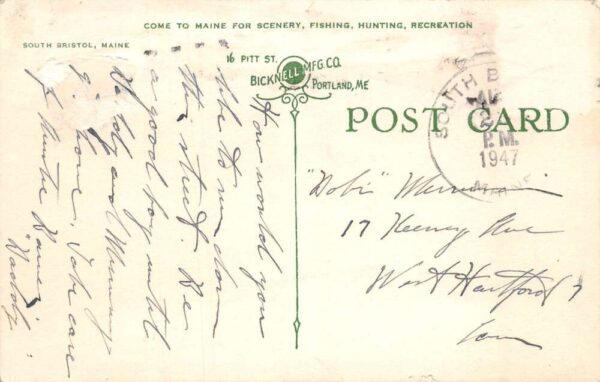 COME TO MAINE FOR SCENERY, FISHING, HUNTING, RECREATION
SOUTH BRISTOL, MAINE
16 PITT ST.
BICKNELL MFG. CO.
PORTLAND, ME
POST CARD
SOUTH B
2
P.M.
1947
How would you
like to run down
this street. Be
a good boy until
Daddy and Mummy
home. Take care
of
Daddy
17 Keeney Ave
West Hartford 7
Conn